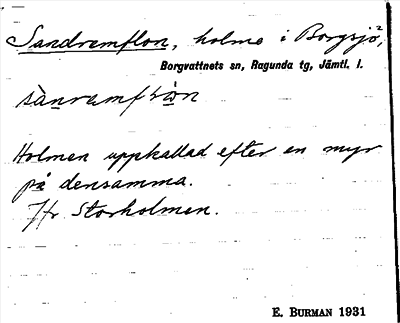 Sandremflon, holme i Borgsjö,
Borgvattnets sn, Ragunda tg, Jämtl. l.
Holmen uppkallad efter en myr
på densamma.
Jfr Storholmen.
E. BURMAN 1931